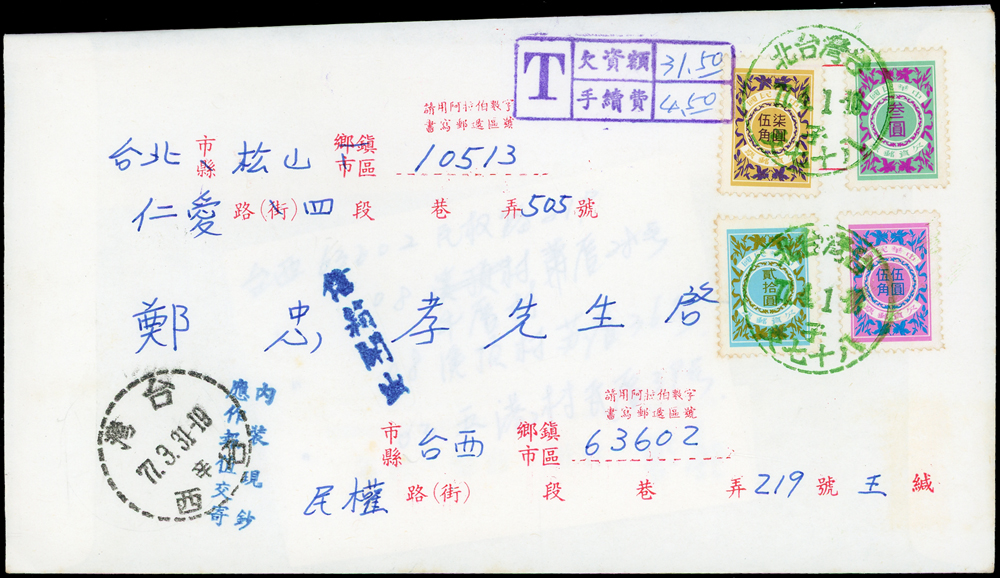 T 欠資額 31.50
手續費 4.50
請用阿拉伯數字
書寫郵遞區號
台北 市縣 松山 鄉鎮市區 10513
仁愛 路(街) 四 段 巷 弄 505 號
鄭忠孝先生啓
請用阿拉伯數字
書寫郵遞區號
市縣 台西 鄉鎮市區 63602
民權 路(街) 段 巷 弄 219 號 王 緘
內裝現鈔
應作報值交寄
台灣
77.3.31-18
台西
台灣台北
七十八
柒圓伍角
叁圓
台灣台北
七十八
貳拾圓
伍圓伍角